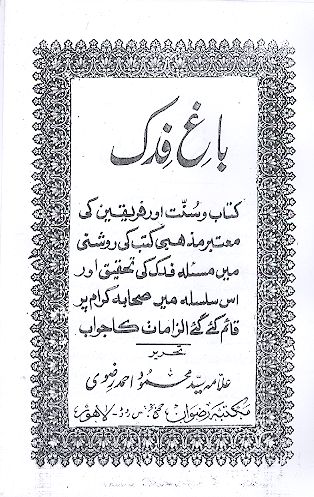 باغِ فِدک
کتاب و سُنّت اور فریقین کی
معتبر مذہبی کتب کی روشنی
میں مسئلہ فدک کی تحقیق اور
اس سلسلہ میں صحابہ کرام پر
قائم کئے گئے الزامات کا جواب
تحریر
علامہ سیّد محمود احمد رضوی
مکتبہ رضوان، گنج بخش روڈ - لاہور